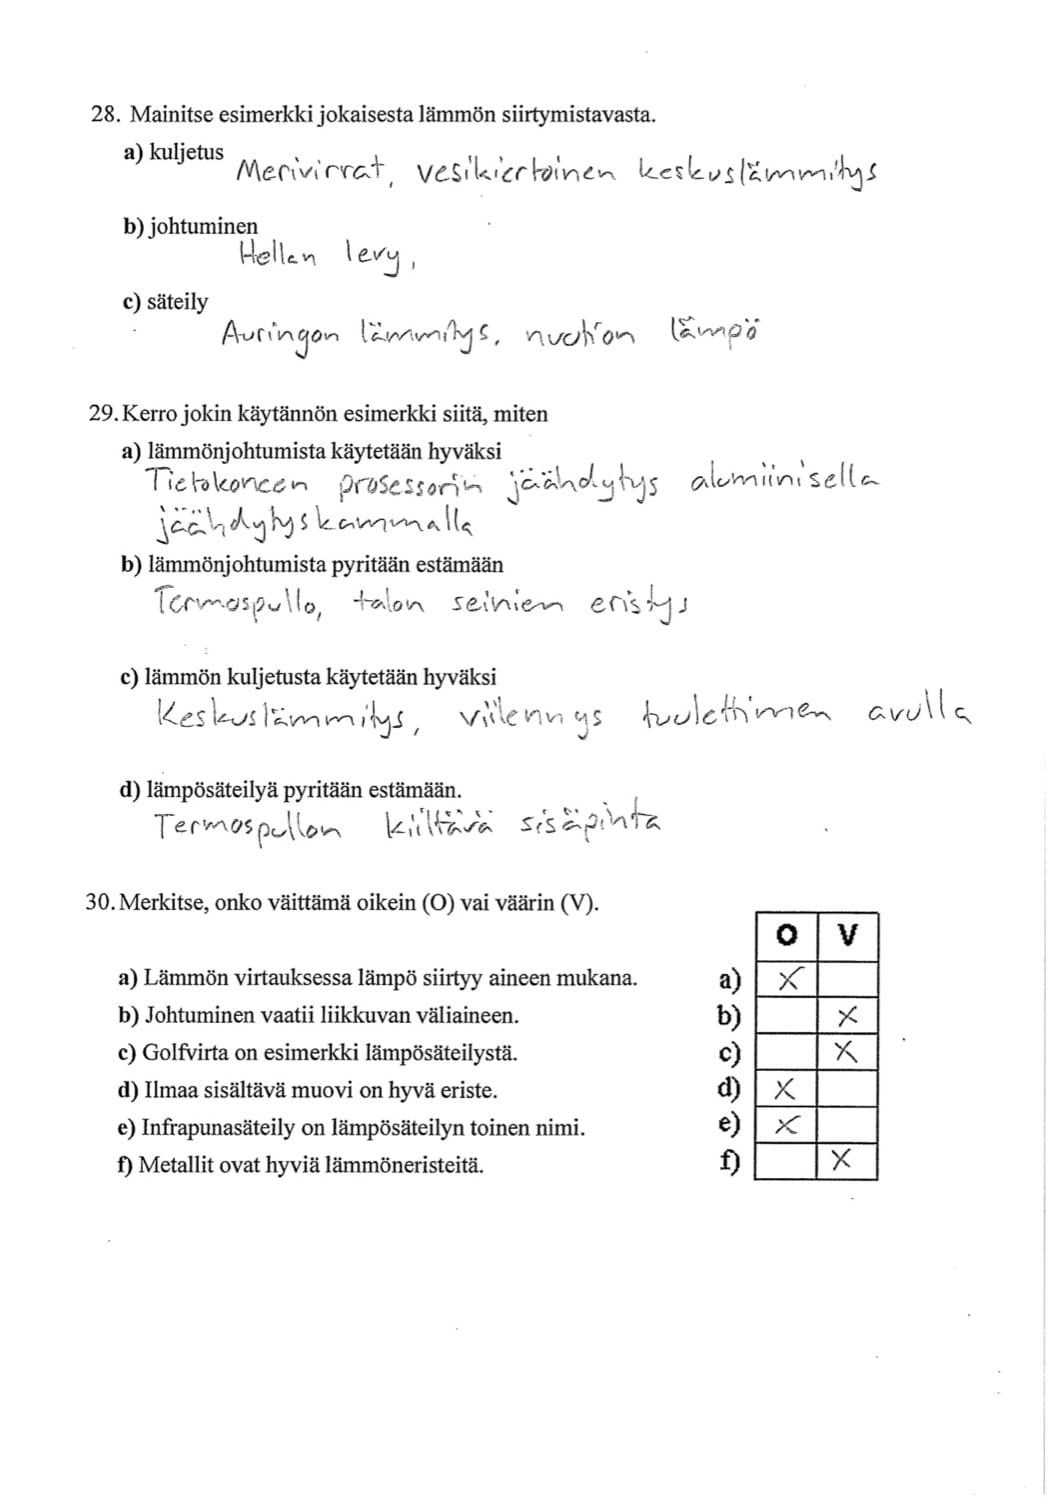 28. Mainitse esimerkki jokaisesta lämmön siirtymistavasta.
a) kuljetus
Merivirrat, vesikiertoinen keskuslämmitys
b) johtuminen
Hellan levy,
c) säteily
Auringon lämmitys, nuotion lämpö
29. Kerro jokin käytännön esimerkki siitä, miten
a) lämmönjohtumista käytetään hyväksi
Tietokoneen prosessorin jäähdytys alumiinisella
jäähdytyskammalla
b) lämmönjohtumista pyritään estämään
Termospullo, talon seinien eristys
c) lämmön kuljetusta käytetään hyväksi
Keskuslämmitys, viilennys tuulettimen avulla
d) lämpösäteilyä pyritään estämään.
Termospullon kiiltävä sisäpinta
30. Merkitse, onko väittämä oikein (O) vai väärin (V).
O V
a) Lämmön virtauksessa lämpö siirtyy aineen mukana. a) X
b) Johtuminen vaatii liikkuvan väliaineen. b) X
c) Golfvirta on esimerkki lämpösäteilystä. c) X
d) Ilmaa sisältävä muovi on hyvä eriste. d) X
e) Infrapunasäteily on lämpösäteilyn toinen nimi. e) X
f) Metallit ovat hyviä lämmöneristeitä. f) X